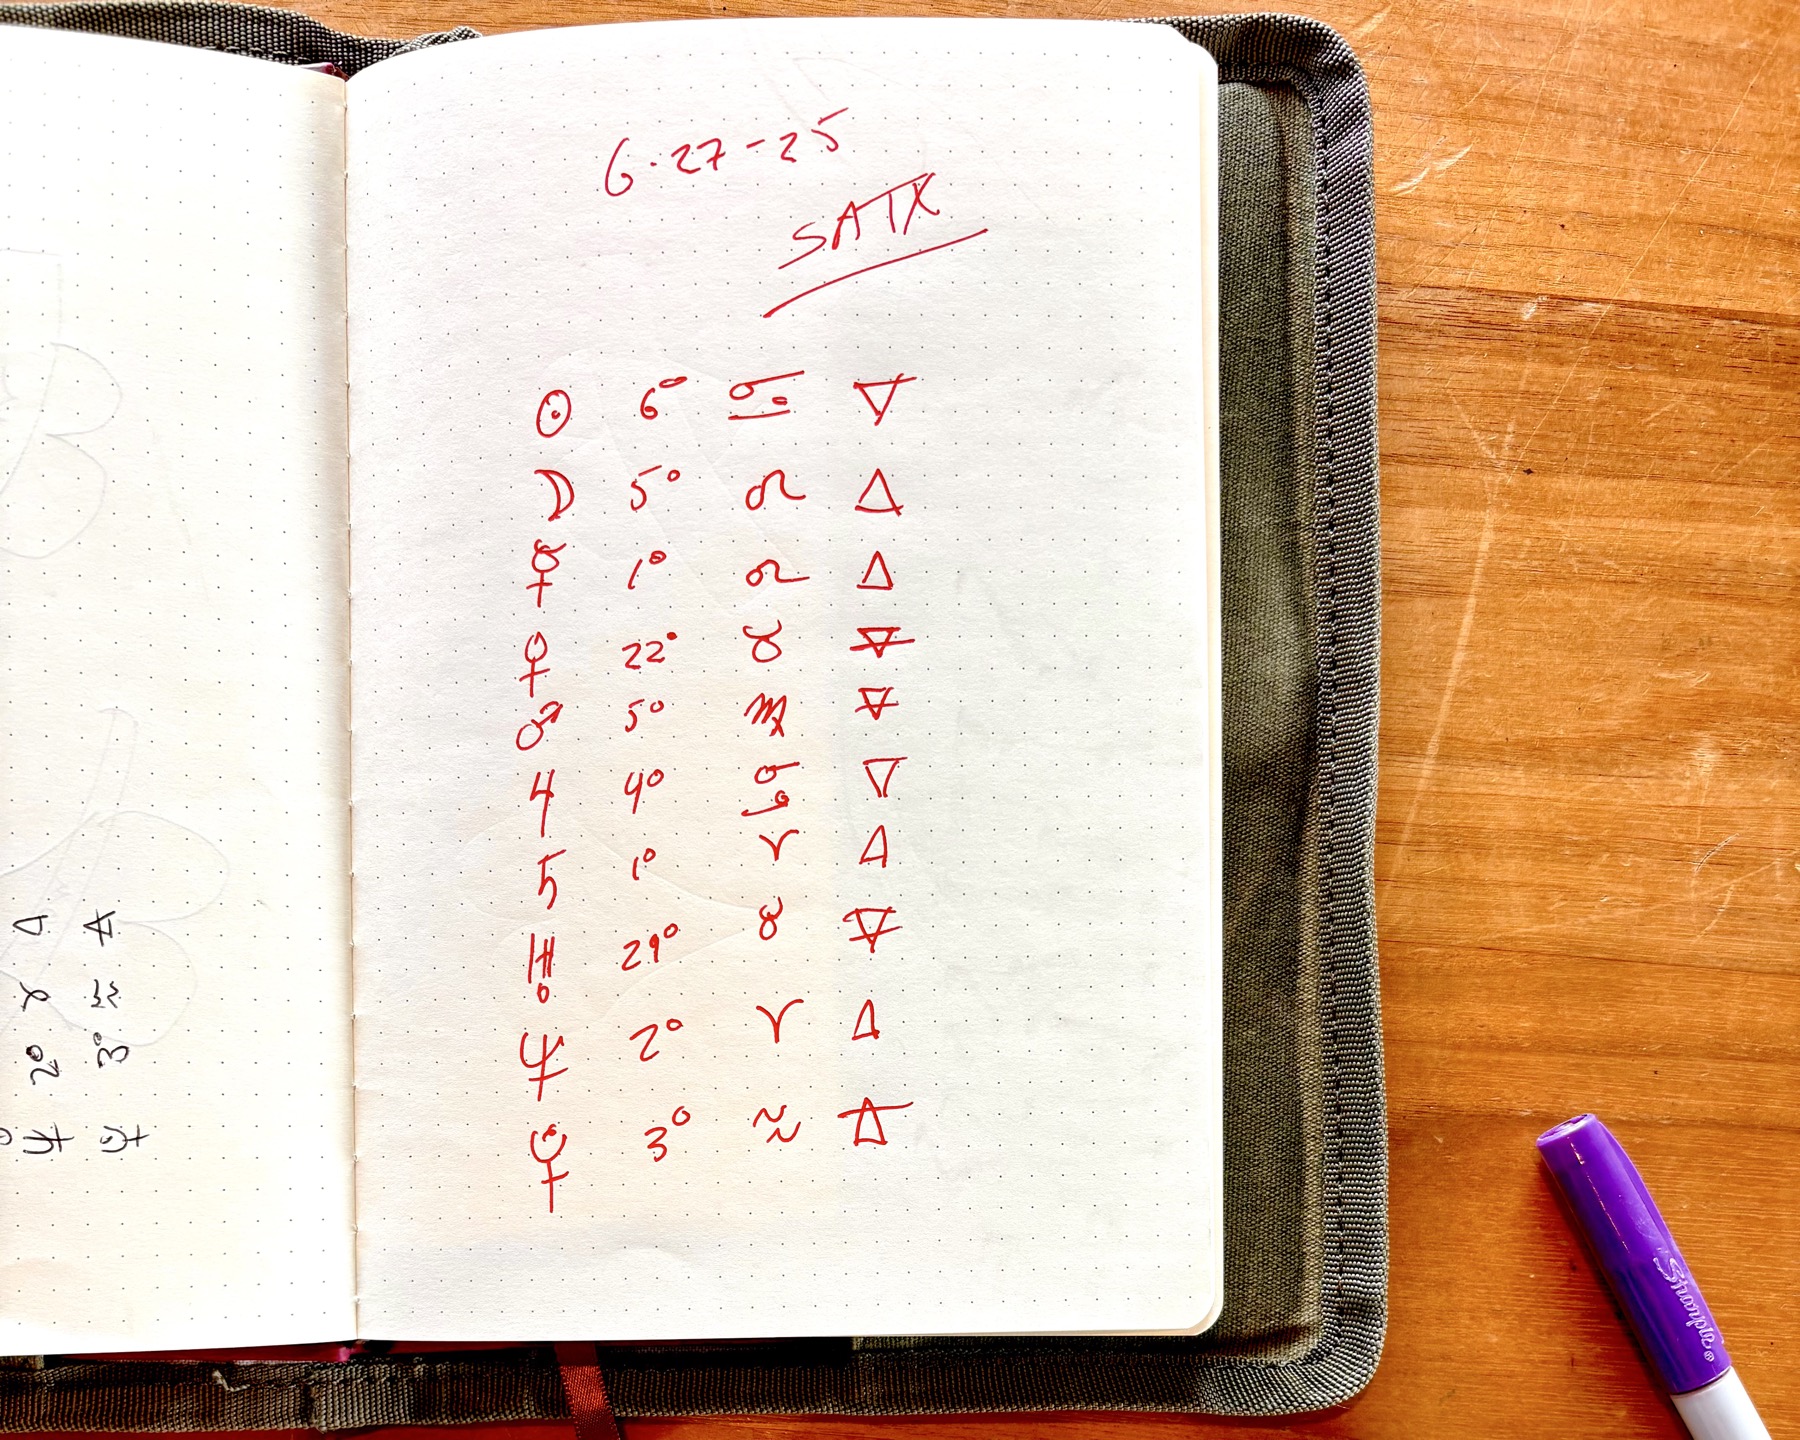 6·27-25
SATX
☉ 6° ♋ 🜄
☽ 5° ♌ 🜂
☿ 1° ♌ 🜂
♀ 22° ♉ 🜃
♂ 5° ♍ 🜃
♃ 4° ♋ 🜄
♄ 1° ♈ 🜂
♅ 29° ♉ 🜃
♆ 2° ♈ 🜂
⯓ 3° ♒ 🜁
♆ 2° ♈ 🜂
⯓ 3° ♒ 🜁
Sharpie®